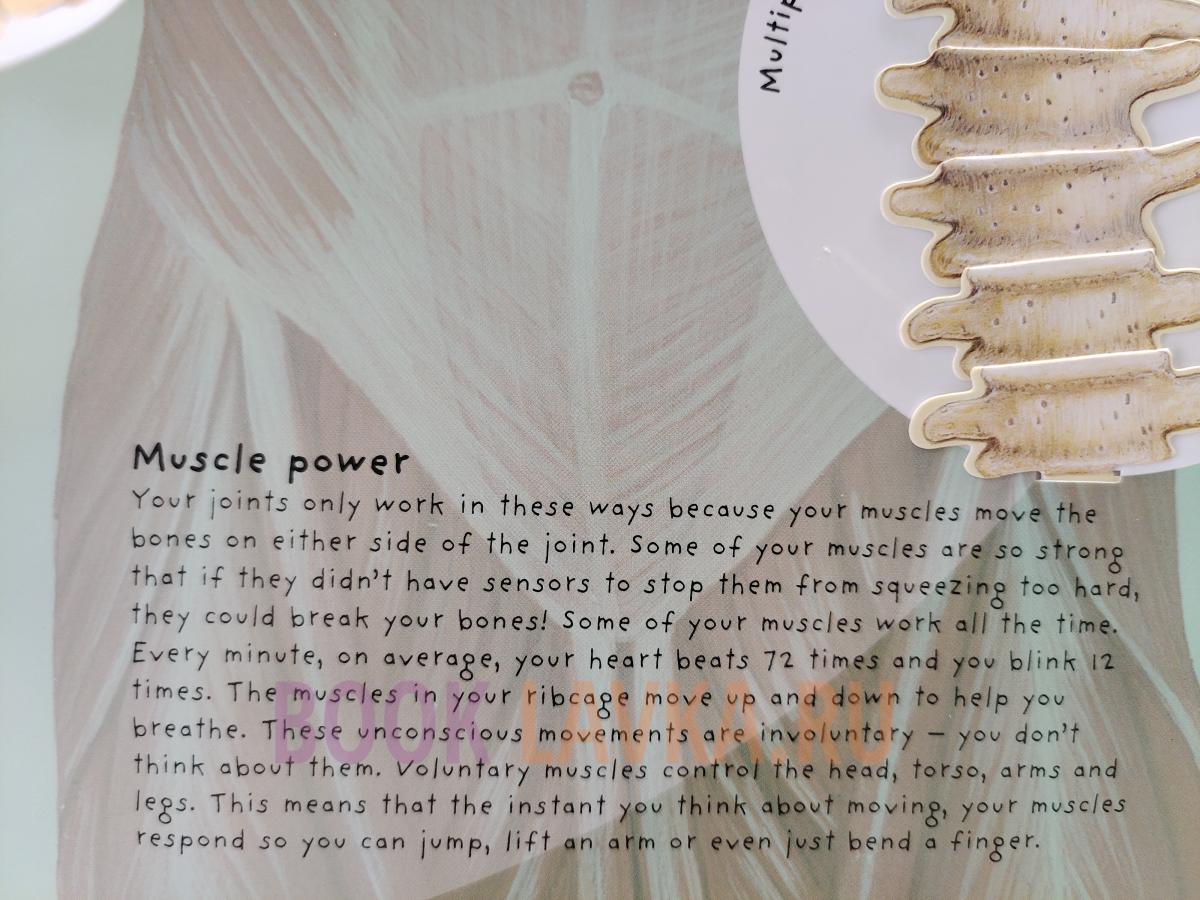 Multip
Muscle power
Your joints only work in these ways because your muscles move the
bones on either side of the joint. Some of your muscles are so strong
that if they didn't have sensors to stop them from squeezing too hard,
they could break your bones! Some of your muscles work all the time.
Every minute, on average, your heart beats 72 times and you blink 12
times. The muscles in your ribcage move up and down to help you
breathe. These unconscious movements are involuntary – you don't
think about them. Voluntary muscles control the head, torso, arms and
legs. This means that the instant you think about moving, your muscles
respond so you can jump, lift an arm or even just bend a finger.
BOOK LAVKA.RU